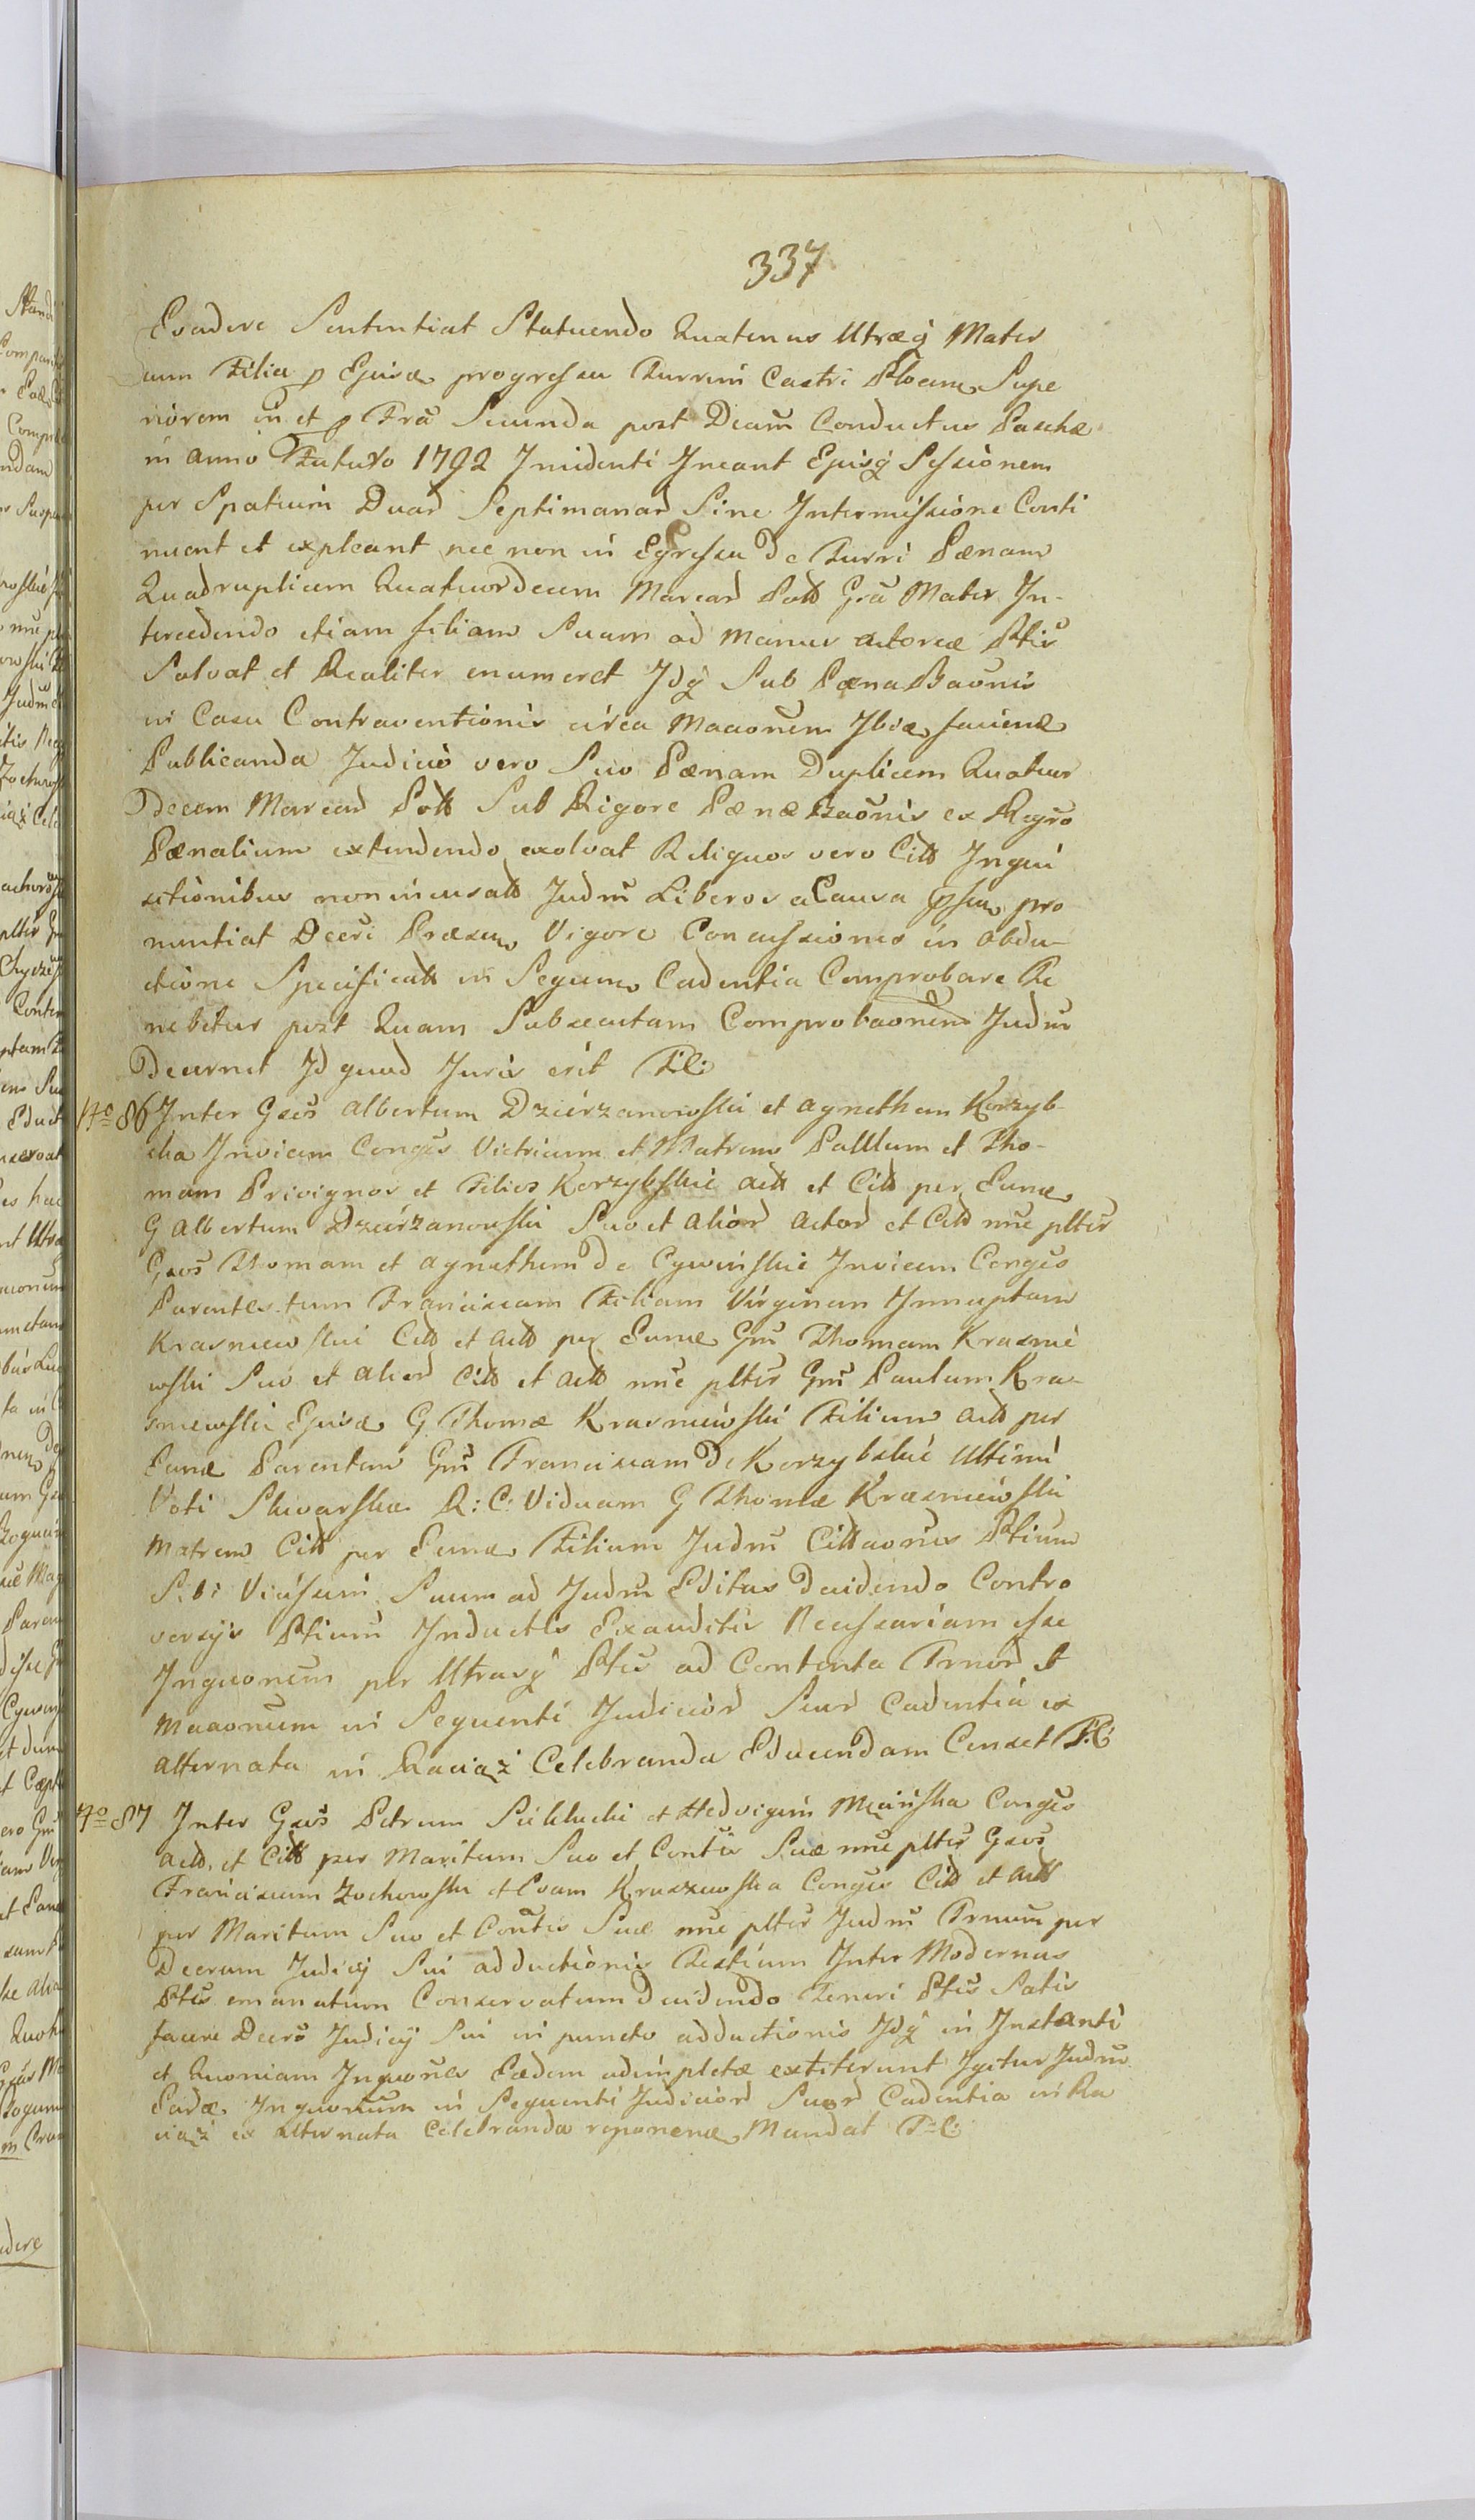 337
Evadere Sententiat Statuendo Quatenus Utraeq Mater
cum Filia p Ejusd progressu Turrim Castri Plocen Supe
riorem in et p Fra Secunda post Dcam Conductus Paschæ
in anno Futuro 1792 Incidenti Ineant Ejusq Sessionem
per Spatium Duar Septimanar Sine Intermissione Conti
nuent et expleant nec non in Egressu de Turri Pænam
Quadruplicem Quatuordecem Marcar Poll Gsa Mater In-
tercedendo etiam filiam Suam ad Manus actoreæ Ptis
Solvat et Realiter enumeret Idq Sub Pæna Baonis
in Casu Contraventionis circa Maaonem Ibid faciend
Publicanda Judicio vero Suo Pænam Duplicem Quatuor
Decem Marcar Poll Sub Rigore Pænæ Baonis ex Regro
Pænalium extendendo exolvat Reliquos vero Citt Inqui
sitionibus non incusatt Judm Liberos a Causa pssu pro
nuntiat Decri Præsen Vigore Concussiones in Obdu-
ctione Specificatt in Sequen Cadentia Comprobare Te
nebitur post Quam Subsecutam Comprobaonem Judm
Decernet Id quod Juris erit T:C:
Nro 86 Inter Gsos Albertum Dzierzanowski et Agnethem Korzyb-
ska Invicem Conges Victricum et Matrem Paullum et Tho-
mam Privignos et Filios Korzybskie Actt et Citt per Eund
G Albertum Dzierzanowski Suo et alior Actor et Citt nne pltis
Gsos Thomam et Agnethem de Cywinskie Invicem Conges
Parentes tum Franciscam Filiam Virginem Innuptam
Krasniewskie Citt et Actt per Eund Gm Thomam Krasnie
wski Suo et alior Citt et Actt nne pltis Gm Paulum Kra-
sniewski Ejusd G Thomæ Krasniewski Filium Actt per
Eund Parentem Gm Franciscam de Korzybskie Ultimi
Voti Skwarska R: C: Viduam G Thomæ Krasniewski
Matrem Citt per Eund Filium Judm Cittaonis Ptium
Sibi Vicissim Suum ad Judm Editas Decidendo Contro
versijs Ptium Inductis Exauditis Necessariam esse
Inquonem per Utrasq Ptes ad Contenta Trnor et
Maaonum in Sequenti Judicior Suor Cadentia ex
alternata in Raciąż Celebranda Educendam Censet T:C:
Nro 87 Inter Gsos Petrum Sieklucki et Hedvigim Meinska Conges
Actt, et Citt per Maritum Suo et Contis Suæ nne pltis Gsos
Franciscum Zochowski et Evam Kraszewska Conges Citt et Actt
per Maritum Suo et Contis Suæ nne pltis Judm Trnum per
Decrum Judicij Sui adductionis Testium Inter Modernas
Ptes emanatum Conservatum Decidendo Teneri Ptes Satis
facere Decro Judicij Sui in puncto adductionis Idq in Instanti
et Quoniam Inquones Eædem adimpletæ extiterunt Igitur Judm
Eard Inquonum in Sequenti Judicior Suor Cadentia in Ra
ciąż ex alternata Celebranda reponend Mandat T:C: